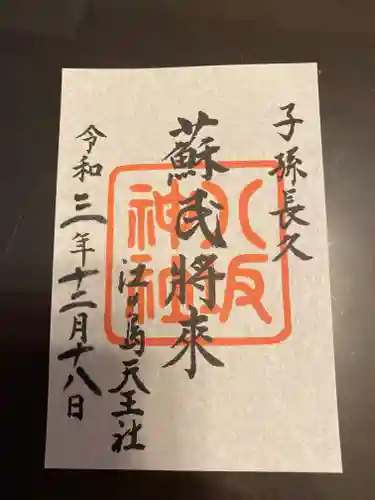 子孫長久
蘇民將來
八坂
神社
江ケ島天王社
令和三年十二月十八日